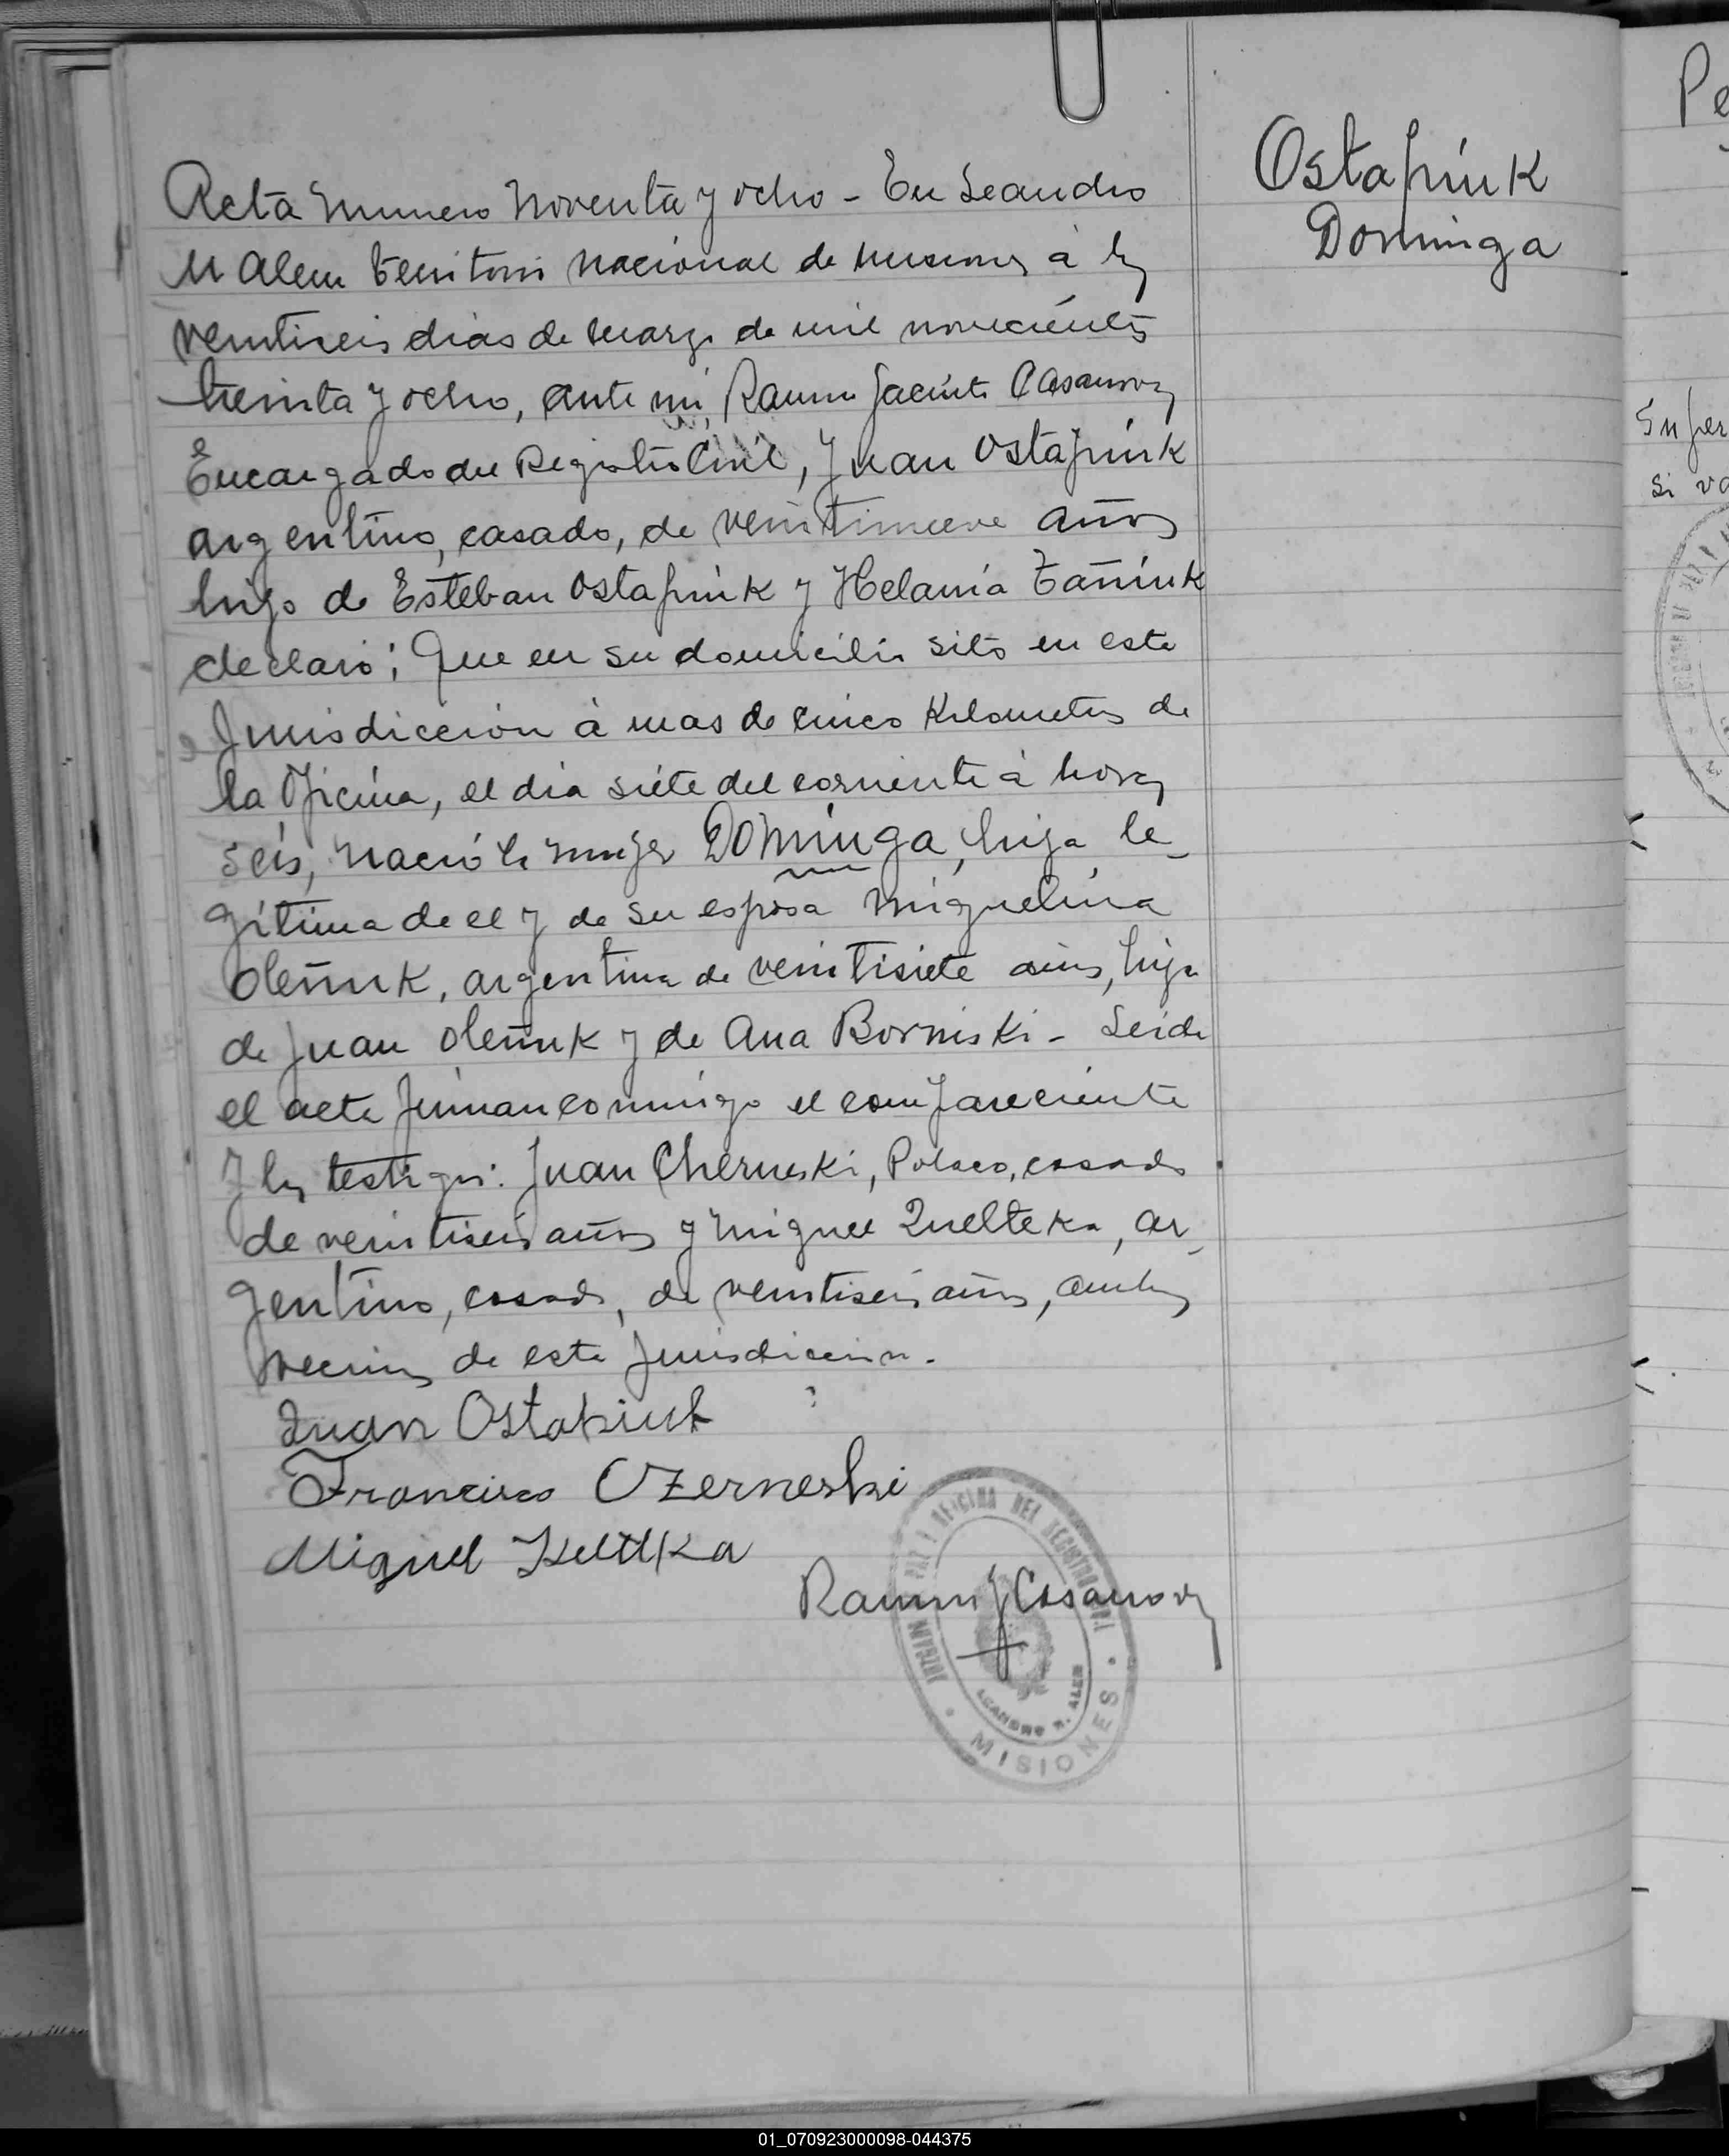 Acta numero noventa y ocho - En Leandro
N Alem territorio nacional de misiones á los
veintiseis dias de marzo de mil novecientos
treinta y ocho, ante mi, Ramon Jacinto Casanova
Encargado del Registro Civil, Juan Ostapiuk
argentino, casado, de veintinueve años
hijo de Esteban Ostapiuk y Helania Tañiuk
declaró: Que en su domicilio sito en esta
Jurisdiccion á mas de cinco Kilometros de
la Oficina, el dia siete del corriente á horas
seis, nació la mujer Dominga, hija le-
gitima de el y de su esposa Miguelina
Oleñuk, argentina de veintisiete años, hija
de Juan Oleñuk y de Ana Borniski - Leida
el acta firman conmigo el compareciente
y los testigos: Juan Cherneski, Polaco, casado
de veintiseis años y Miguel Quelteka, ar-
gentino, casado, de veintiseis años, ambos
vecinos de esta jurisdiccion.
Juan Ostapiuk
Francisco Czerneski
Miguel
Ramon J Casanova
OFICINA DEL REGISTRO CIVIL
LEANDRO N. ALEM
MISIONES
Ostapiuk
Dominga
Pe
si va
01_070923000098-044375